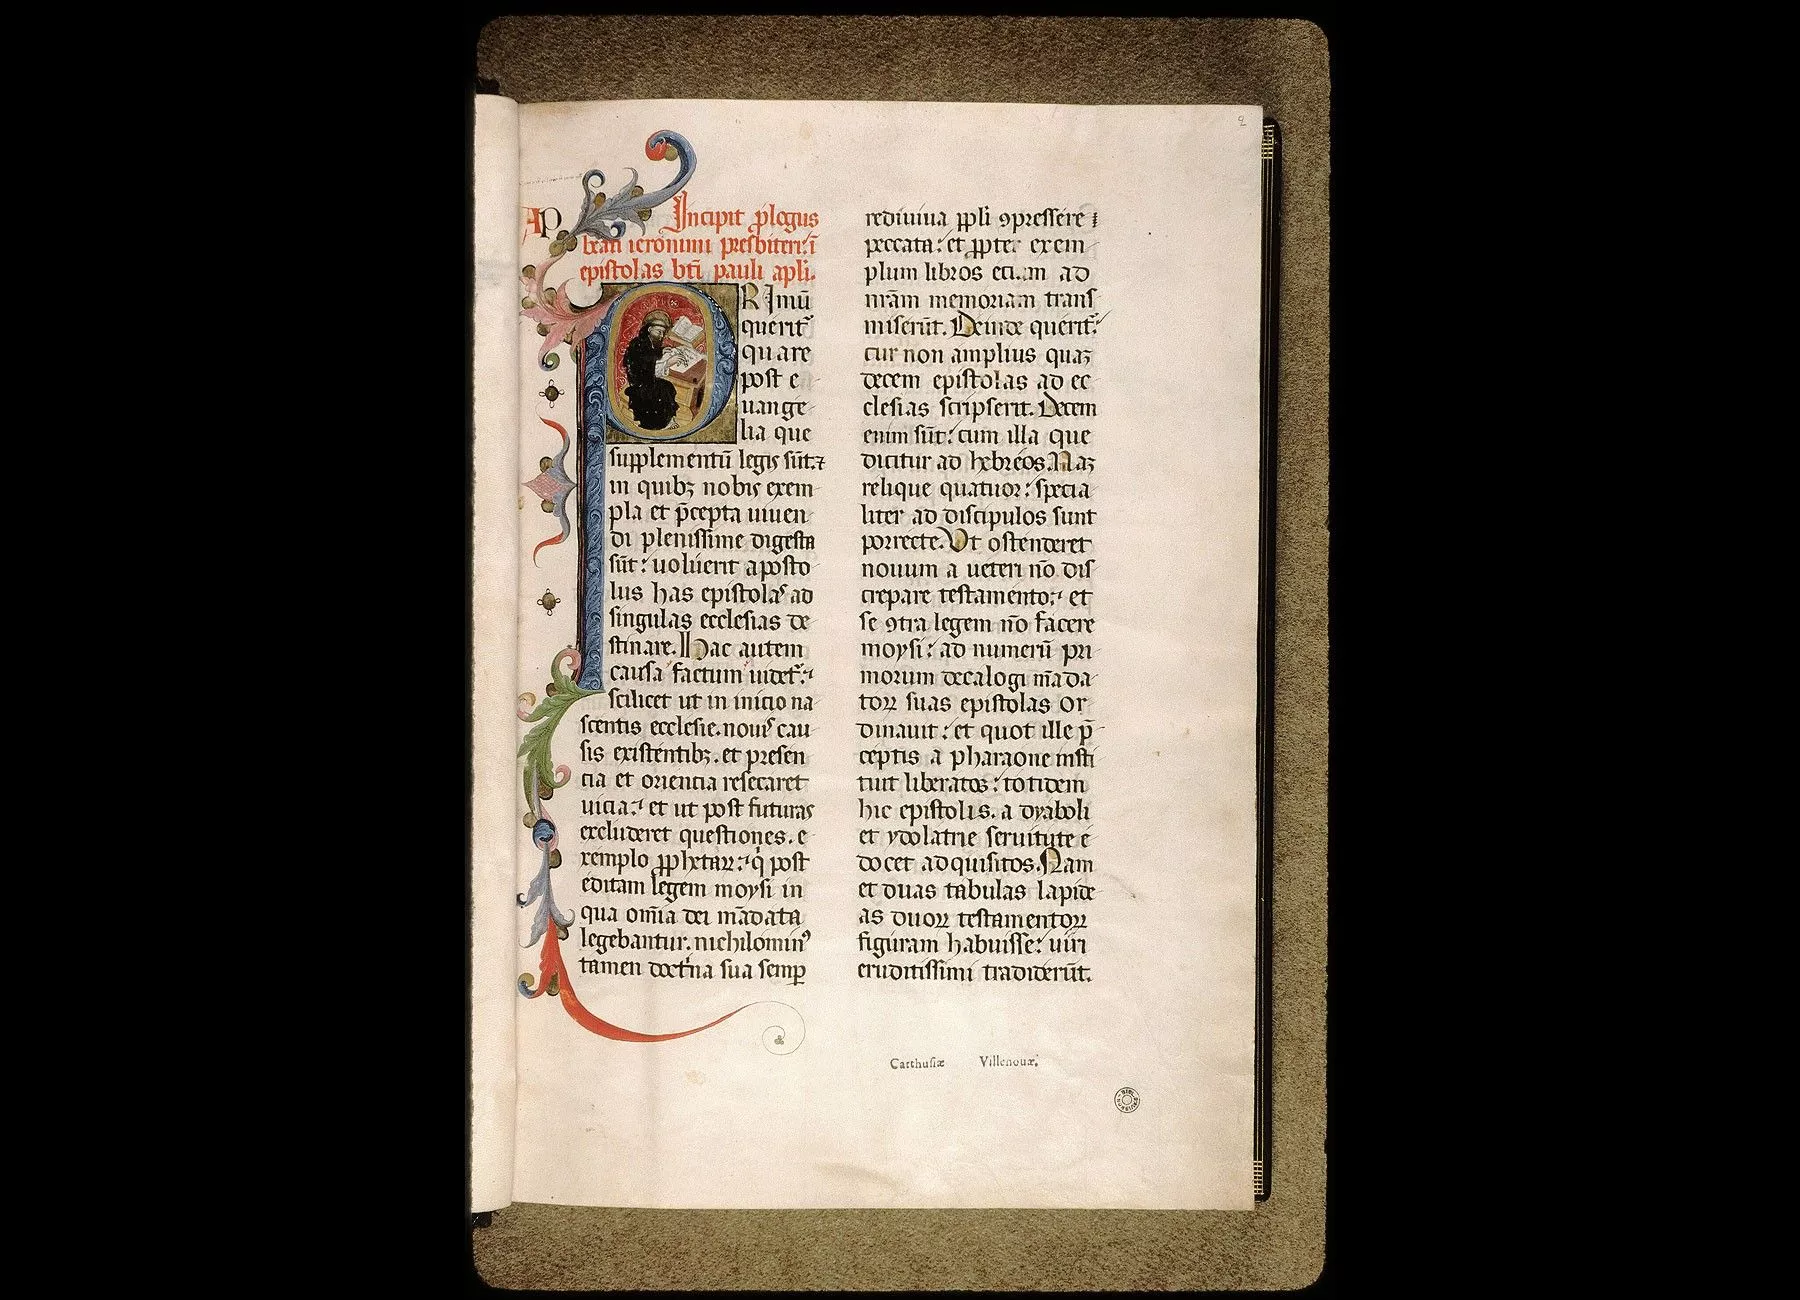 2
Ap
Incipit p̄logus
beati ieronimi presbiteri: ī
epistolas bt̄i pauli apl̄i.
PRImū
querit᷑
quare
post e
uange
lia que
supplementū legis sūt: ⁊
in quibꝫ nobis exem
pla et p̄cepta uiuen
di plenissime digesta
sūt: uoluerit aposto
lus has epistolas ad
singulas ecclesias de
stinare. Hac autem
causa factum uidet᷑:
scilicet ut in inicio na
scentis ecclesie. nouis cau
sis existentibꝫ. et presen
cia et oriencia resecaret
uicia: et ut post futuras
excluderet questiones. e
xemplo ꝓphetaꝝ: q̇ post
editam legem moysi in
qua om̄ia dei mādata
legebantur. nichilominꝰ
tamen doct͛na sua semꝑ
rediuiua ꝓpl̄i ꝯpressere
peccata: et ꝓpter exem
plum libros etiam ad
nr̄am memoriam trans
miserūt. Deinde querit᷑:
cur non amplius quaꝫ
decem epistolas ad ec
clesias scripserit. Decem
enim sūt: cum illa que
dicitur ad hebreos. Naꝫ
relique quatuor: specia
liter ad discipulos sunt
porrecte. Vt ostenderet
nouum a ueteri nō dis
crepare testamento: et
se ꝯtra legem nō facere
moysi: ad numerū pri
morum decalogi māda
toꝝ suas epistolas or
dinauit: et quot ille p̄
ceptis a pharaone insti
tuit liberatos: totidem
hic epistolis. a dyaboli
et ydolatrie seruitute e
docet adquisitos. Nam
et duas tabulas lapide
as duoꝝ testamentoꝝ
figuram habuisse: uiri
eruditissimi tradiderūt.
Carthusiæ Villenouæ.